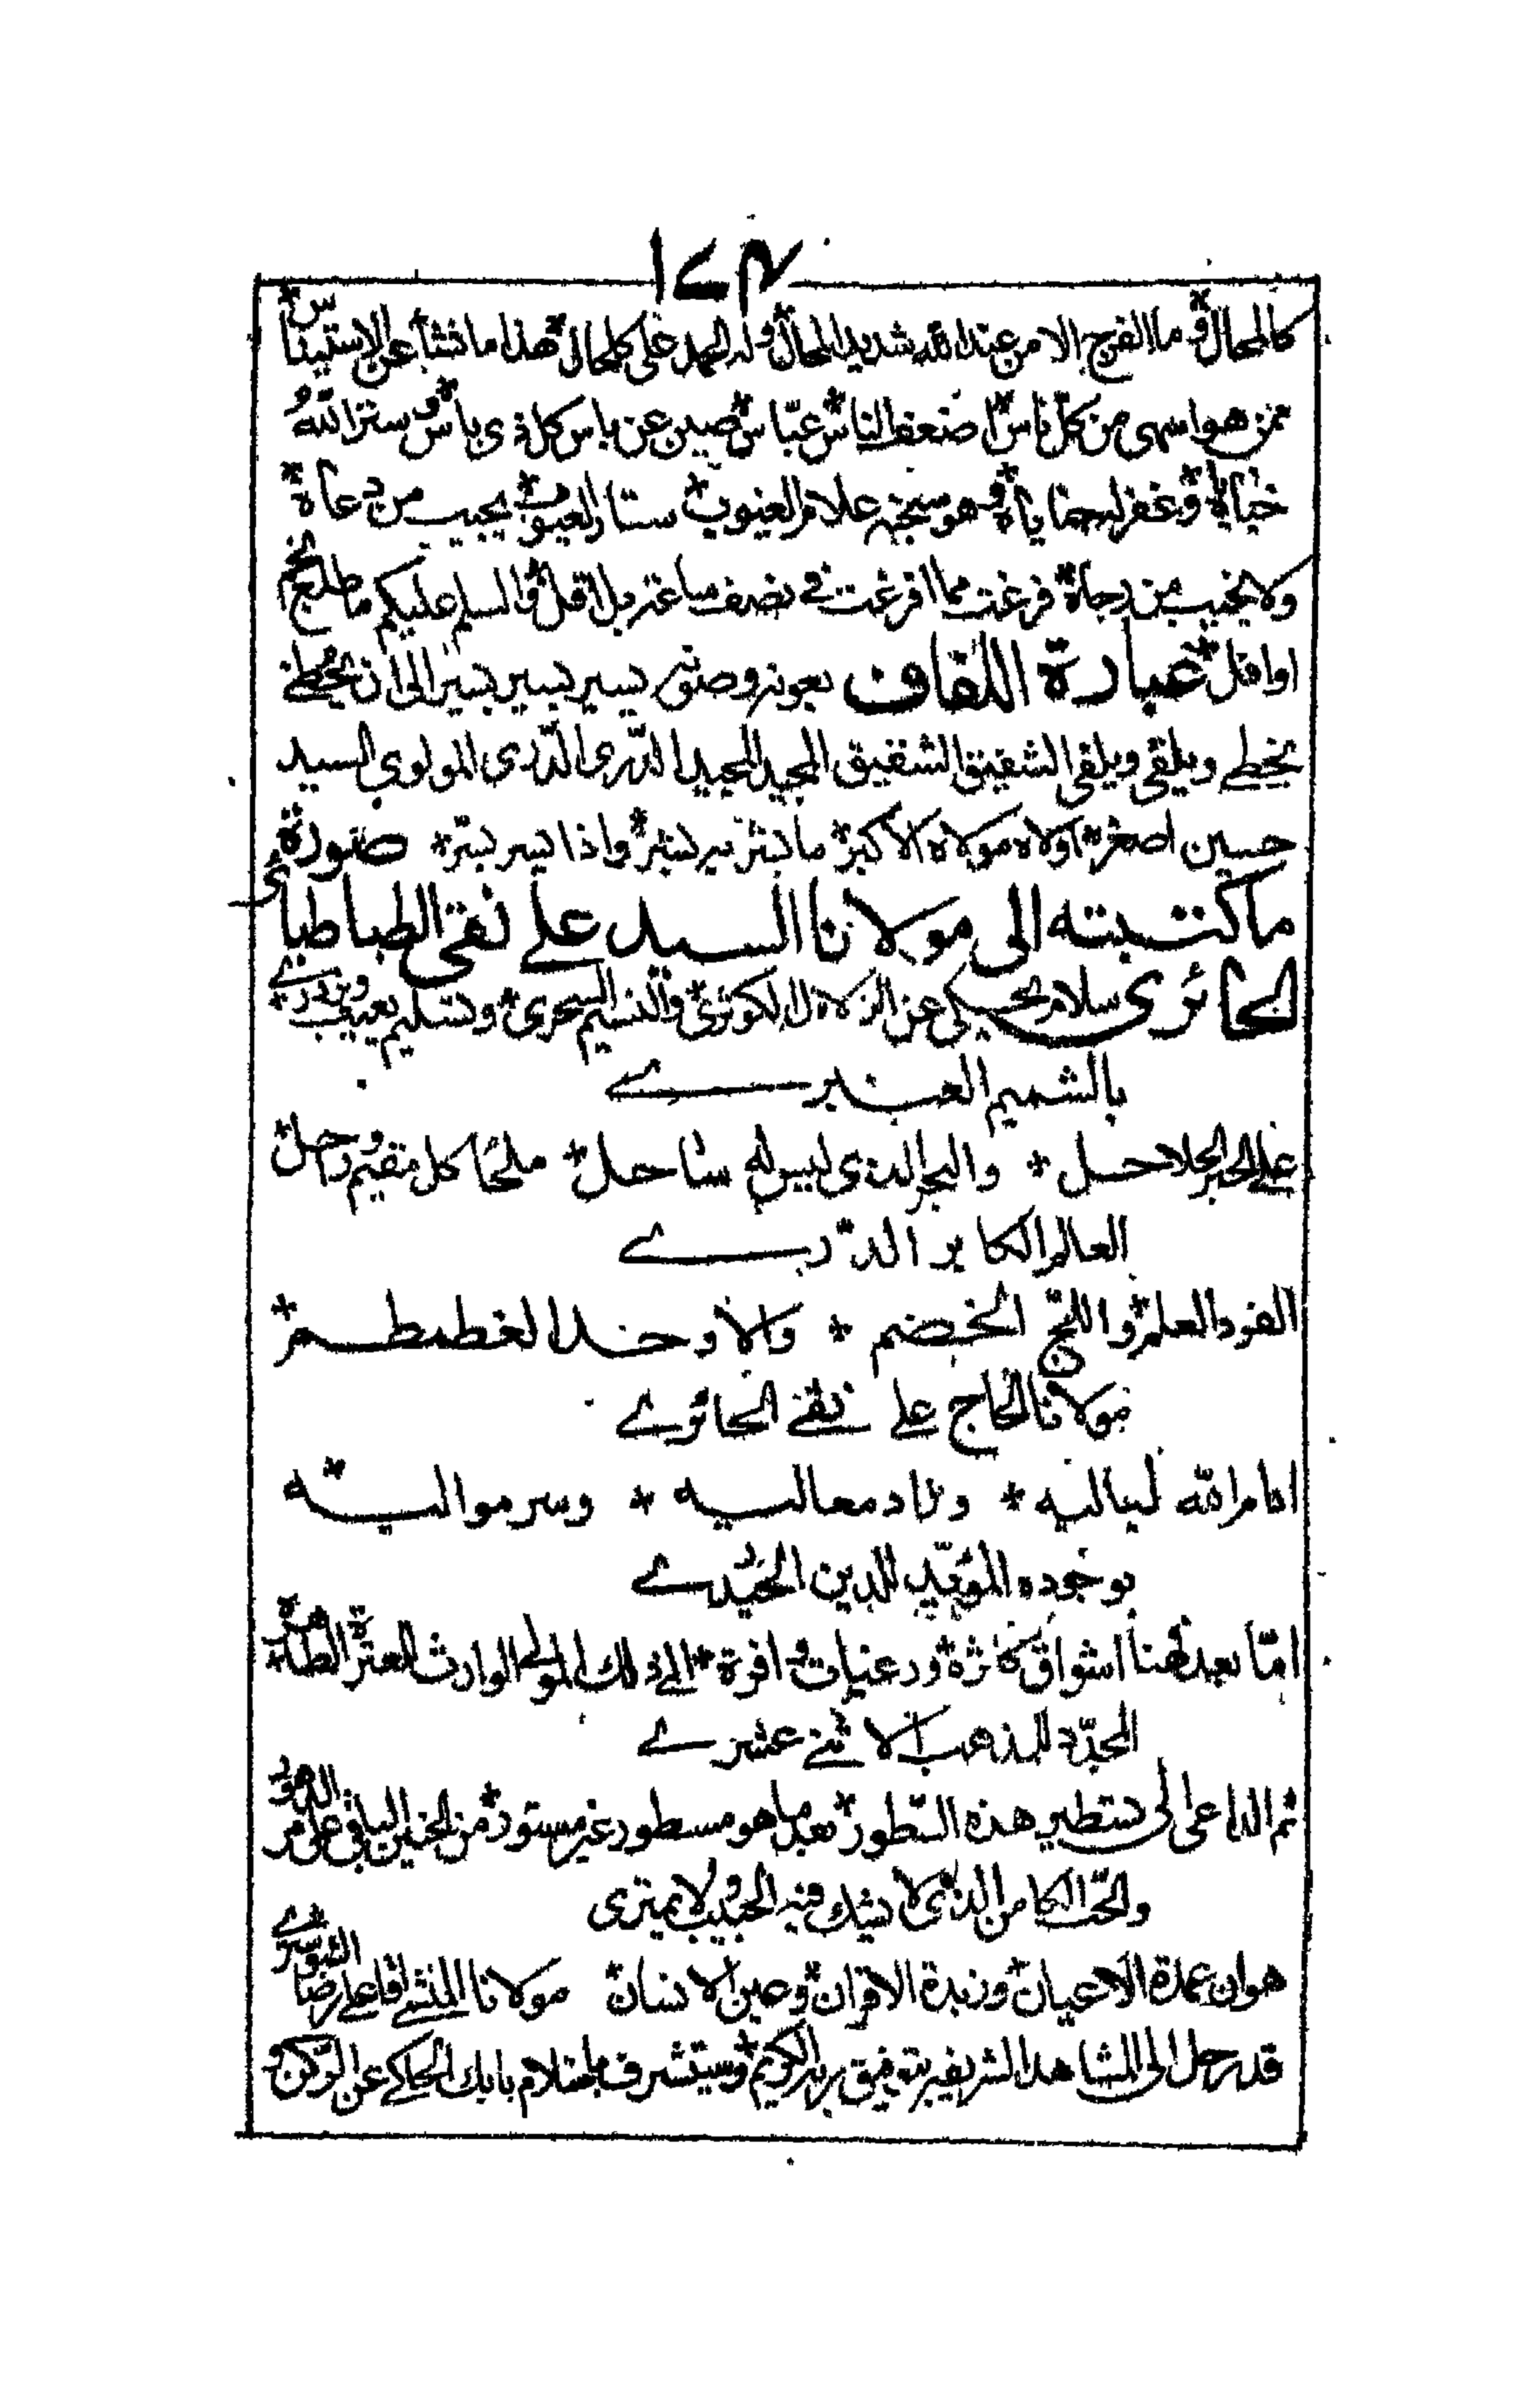 ١٧٤
كالمحال * وما الفرج الا من عند الله شديد المحال * وله الحمد على كل حال * هذا ما نشأ عن الاستيناس *
ممن هو اسهى من كل ناس * اضعف الناس عباس * صين عن باس كل ذى باس * وستر الله
خباياه * وغفر له خطاياه * وهو سبحنه علام الغيوب * ستار العيوب * يجيب من دعاه *
ولا يخيب من رجاه * فرغت مما افرغت فے نصف ساعة بل اقل * والسلم عليكم ما طلع نجم
او افل * عبارة اللفاف بعونه وصونه يسير يسير يسير الى ان يحظے
يحظے ويلقى ويلقى الشفيق الشفيق المجيد المجيد الدرى الدرى المولوي السيد
حسين اصغر * اولاه مولاه الاكبر * ما يسر به يبشر * واذا يسر يسر * صورة
ما كتبته الى مولانا السيد علے نقى الطباطبائى
الحائرى سلام يحكى عن الزلال الكوثرى * والنسيم السحرى * وتسليم يعيب ويزدرے *
بالشميم العنبرے
علے الحبر الحلاحل * والبحر الذى ليس له ساحل * ملجأ كل مقيم وراحل *
العالم الكابر الدرے
الفرد العلم * واللج الخضم * والاوحد الغطمطم *
مولانا الحاج علے نقے الحائرے
ادام الله لياليه * وزاد معاليه * وسر مواليه *
بوجوده المؤيد للدين الحيدرے
اما بعد فهنا اشواق كاثرة * ورغبات وافرة * الى ذلك المولى الوارث للعترة الطاهرة *
المجدد للمذهب الاثنے عشرے
ثم الداعى الى تسطير هذه السطور * بعد ما هو مسطور غير مستور * من الحنين الباقى على مر الدهور
والحب الكامن الذى لا يشك فيه الحبيب ولا يمترى
هو ان عمدة الاعيان * وزبدة الاقران * وعين الانسان * مولانا المنشے اقا علے رضا الشوسترے
قد رحل الى المشاهد الشريفة بتوفيق ربه الكريم * وسيتشرف باستلام بابك الحاكے عن الركن و